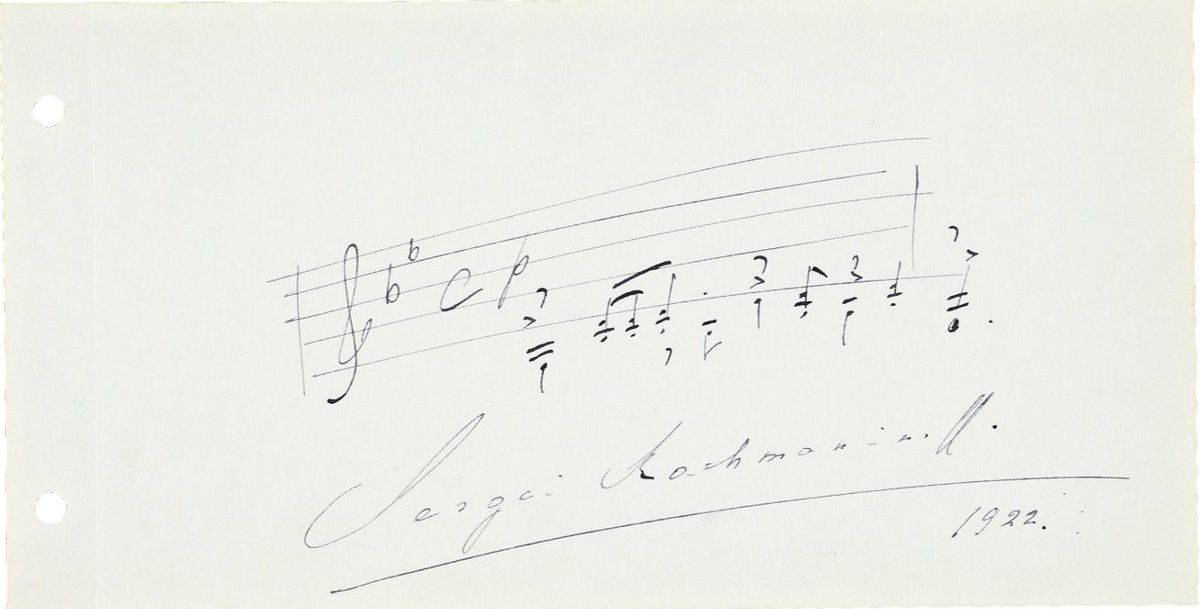 C p
Sergei Rachmaninoff.
1922.